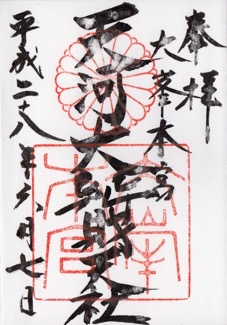 奉拝
大峯本宮
天河大辨財天社
平成二十八年六月七日